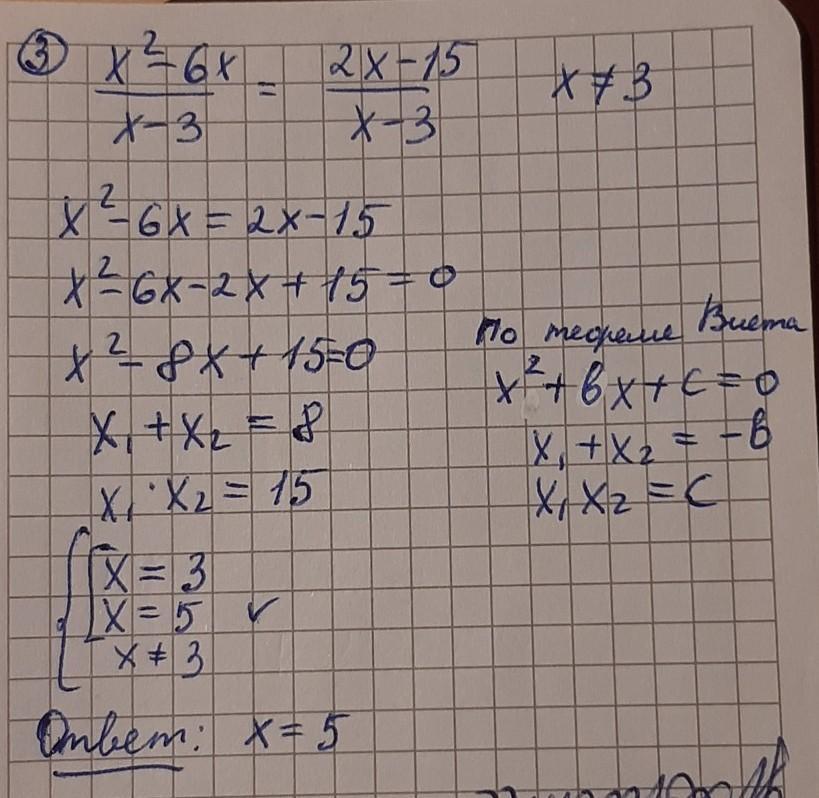 ③ (x² - 6x)/(x - 3) = (2x - 15)/(x - 3) x ≠ 3
x² - 6x = 2x - 15
x² - 6x - 2x + 15 = 0
x² - 8x + 15 = 0
x₁ + x₂ = 8
x₁ · x₂ = 15
По теореме Виета
x² + bx + c = 0
x₁ + x₂ = -b
x₁ x₂ = c
{ [ x = 3
x = 5 ✓
x ≠ 3
Ответ: x = 5